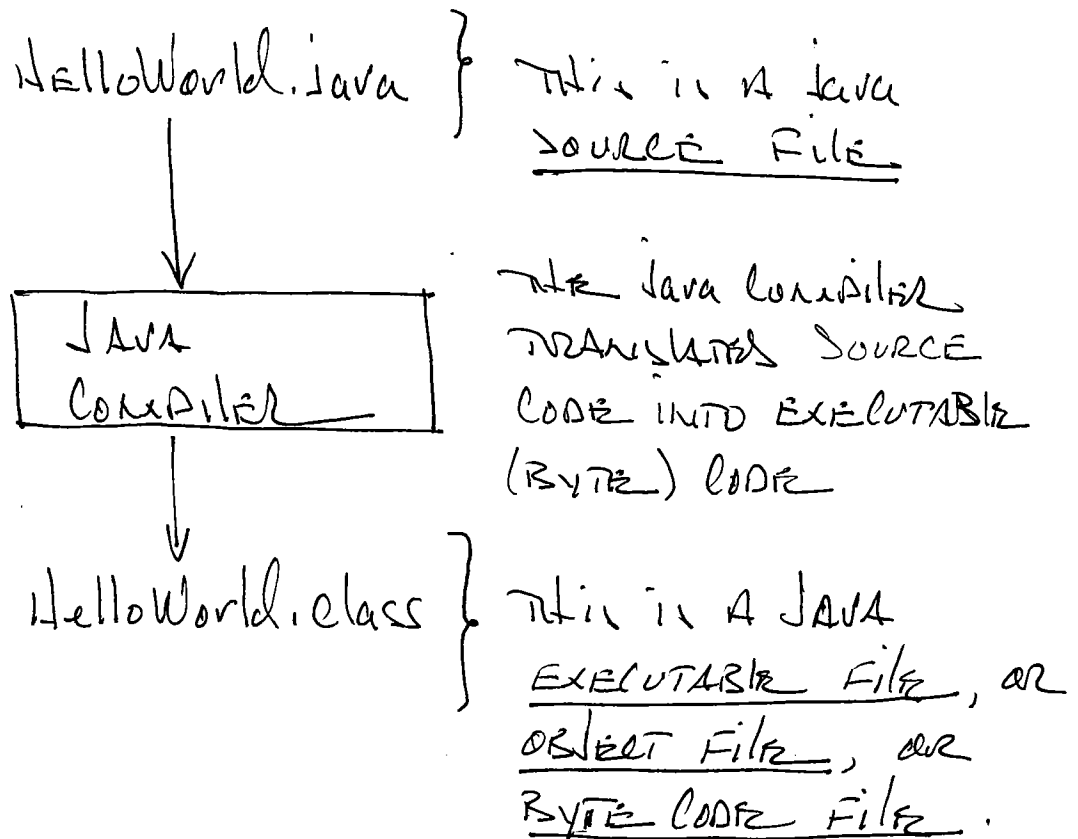 HelloWorld.java
This is A Java
SOURCE File
JAVA
Compiler
The Java Compiler
TRANSLATES SOURCE
CODE INTO EXECUTABLE
(BYTE) CODE
HelloWorld.class
This is A JAVA
EXECUTABLE File, OR
OBJECT File, OR
BYTE CODE File.